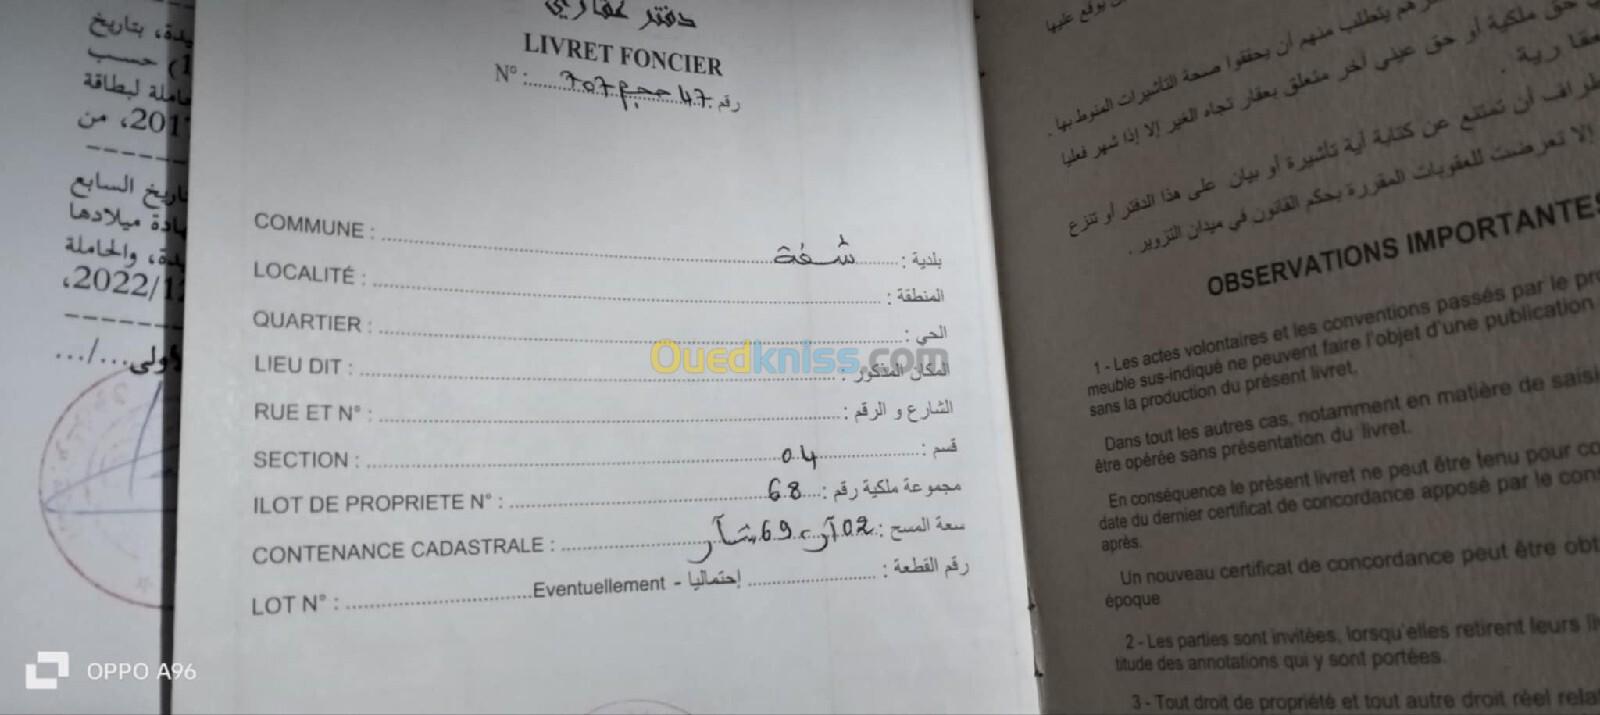 يدة، بتاريخ
حسب
املة لبطاقة
من
تاريخ السابع
ميلادها
يدة، والحاملة
2022/12،
لأولى.../...
دفتر عقاري
LIVRET FONCIER
N° : 707 حجم 47 رقم
COMMUNE : شفة بلدية :
LOCALITÉ : المنطقة :
QUARTIER : الحي :
LIEU DIT : المكان المذكور :
RUE ET N° : الشارع و الرقم :
SECTION : 04 قسم :
ILOT DE PROPRIETE N° : 68 مجموعة ملكية رقم :
CONTENANCE CADASTRALE : 02 آر 69 سآر سعة المسح :
LOT N° : Eventuellement - إحتماليا رقم القطعة :
يوقع عليها
هم يتطلب منهم أن يحققوا صحة التأشيرات المنوط بها .
حق ملكية أو حق عيني آخر متعلق بعقار تجاه الغير إلا إذا شهر فعليا
طراف أن تمتنع عن كتابة أية تأشيرة أو بيان على هذا الدفتر أو تنزع
إلا تعرضت للعقوبات المقررة بحكم القانون في ميدان التزوير .
OBSERVATIONS IMPORTANTES
1 - Les actes volontaires et les conventions passés par le pro
meuble sus-indiqué ne peuvent faire l'objet d'une publication
sans la production du présent livret.
Dans tout les autres cas, notamment en matière de saisi
être opérée sans présentation du livret.
En conséquence le présent livret ne peut être tenu pour co
date du dernier certificat de concordance apposé par le cons
après.
Un nouveau certificat de concordance peut être obt
époque
2 - Les parties sont invitées, lorsqu'elles retirent leurs li
titude des annotations qui y sont portées.
3 - Tout droit de propriété et tout autre droit réel rela
Ouedkniss.com
OPPO A96